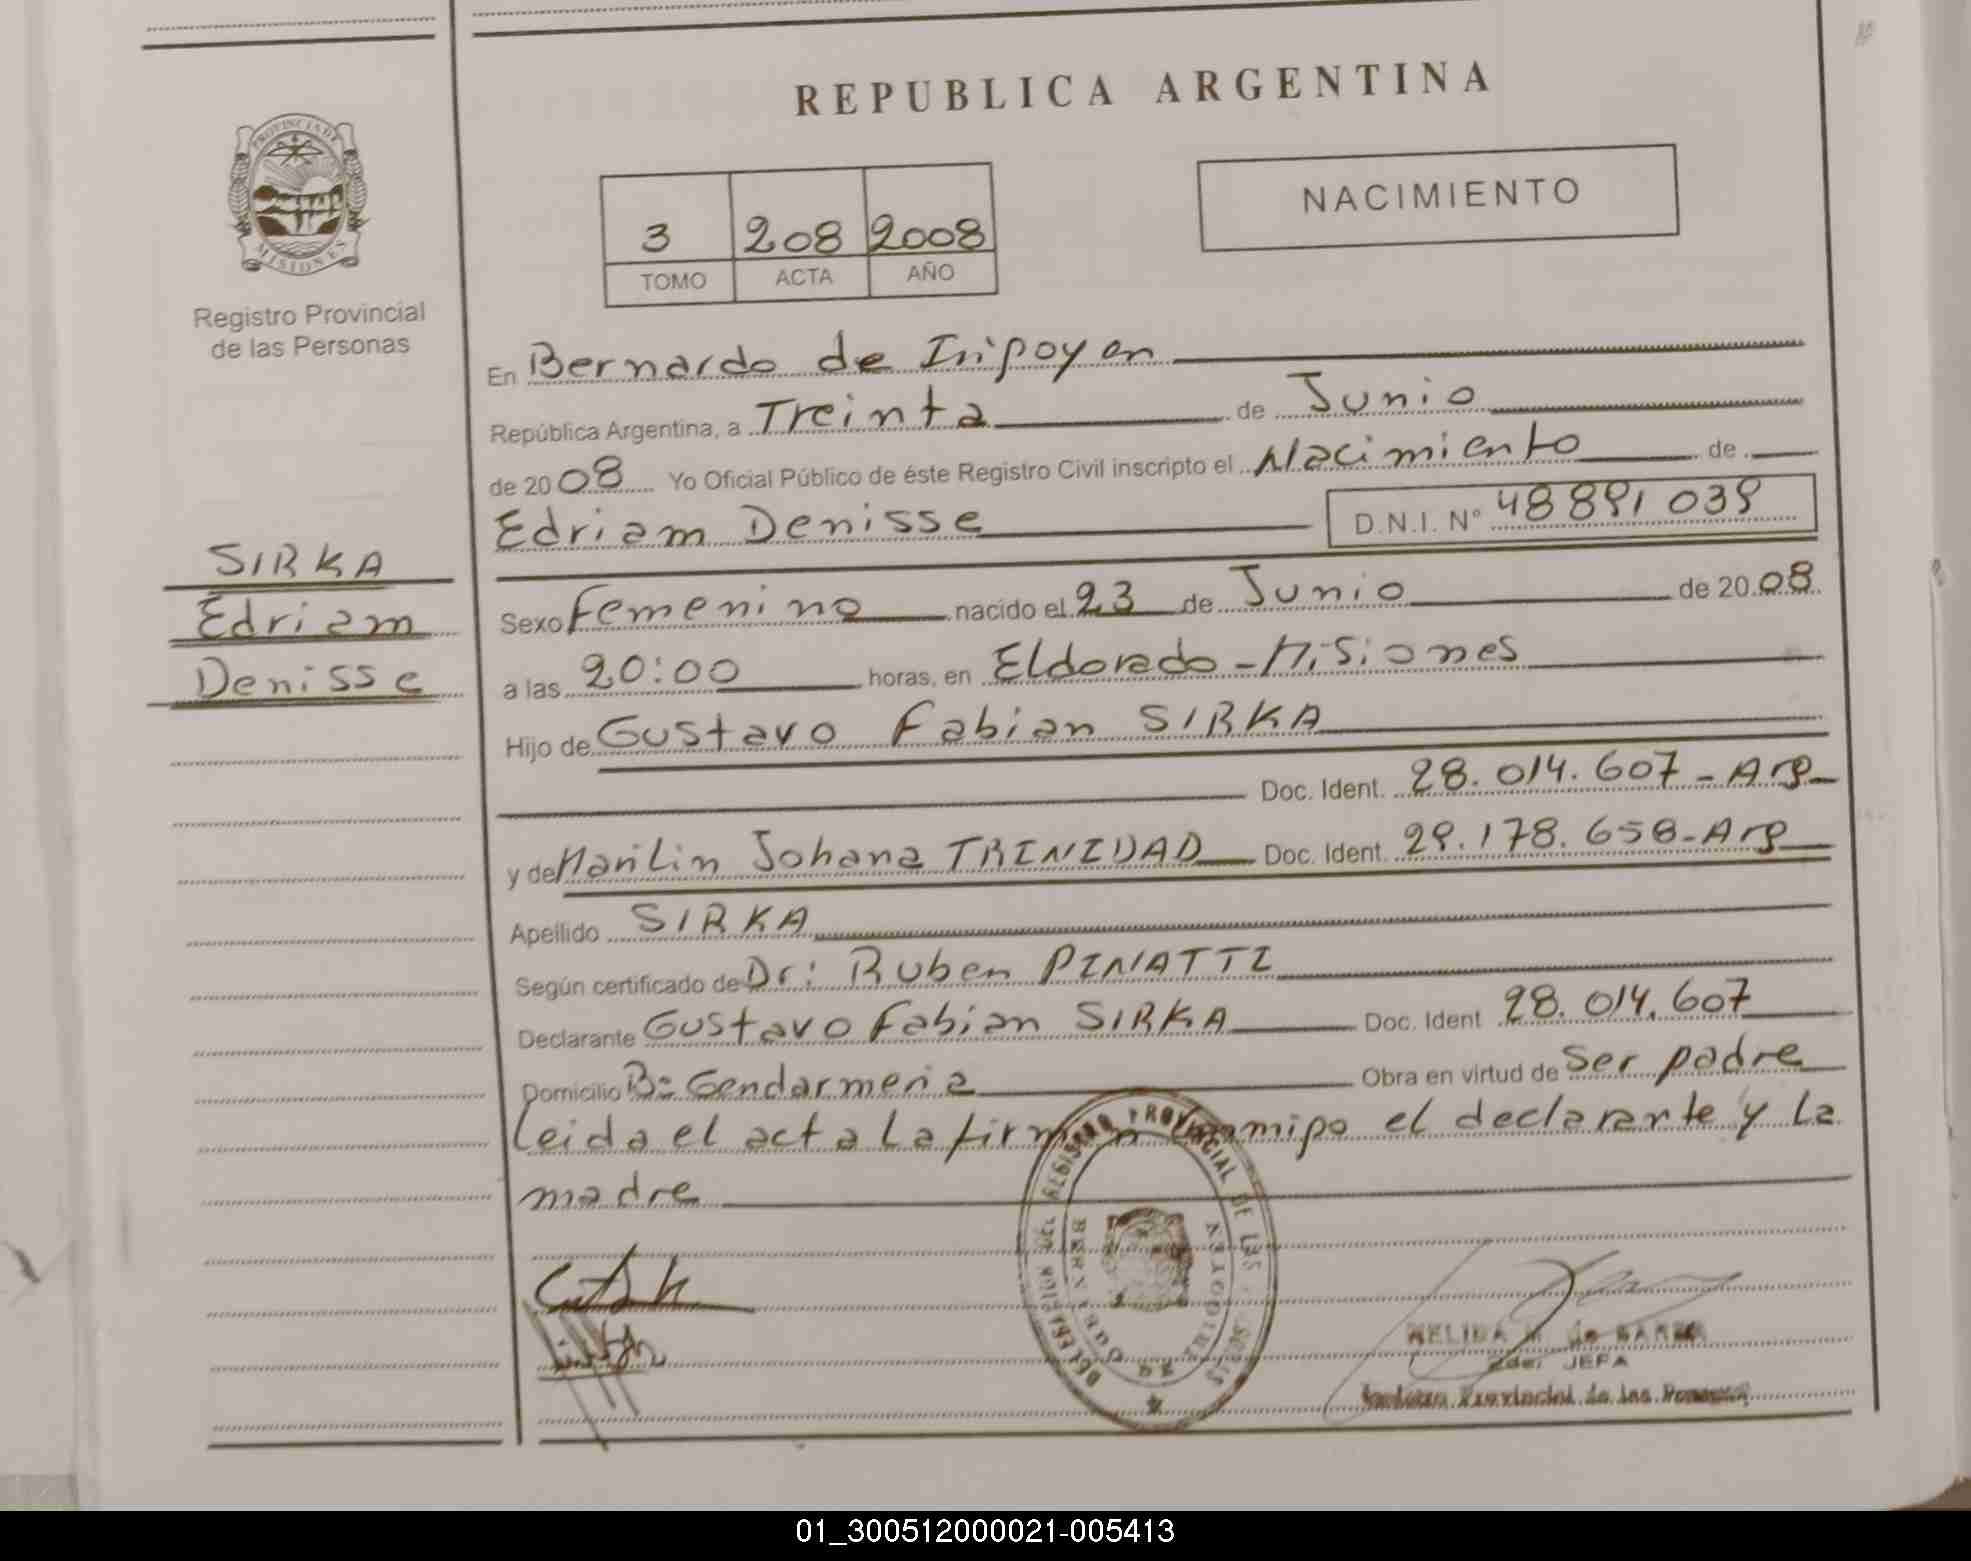 REPUBLICA ARGENTINA
PROVINCIA DE
MISIONES
Registro Provincial
de las Personas
3 208 2008
TOMO ACTA AÑO
NACIMIENTO
En Bernardo de Iripoyen
República Argentina, a Treinta de Junio
de 2008 Yo Oficial Público de éste Registro Civil inscripto el Nacimiento de
Edriam Denisse D.N.I. Nº 48891039
SIRKA
Edriam
Denisse
Sexo Femenino nacido el 23 de Junio de 2008
a las 20:00 horas, en Eldorado - Misiones
Hijo de Gustavo Fabian SIRKA
Doc. Ident. 28.014.607 - Arg
y de Marilin Johana TRINIDAD Doc. Ident. 29.178.658 - Arg
Apellido SIRKA
Según certificado de Dr: Ruben PINATTI
Declarante Gustavo Fabian SIRKA Doc. Ident 28.014.607
Domicilio Bº Gendarmeria Obra en virtud de Ser padre
Leida el acta La firman conmigo el declarante y La
madre
REGISTRO PROVINCIAL DE LAS
JEFA
Provincial de las
01_300512000021-005413